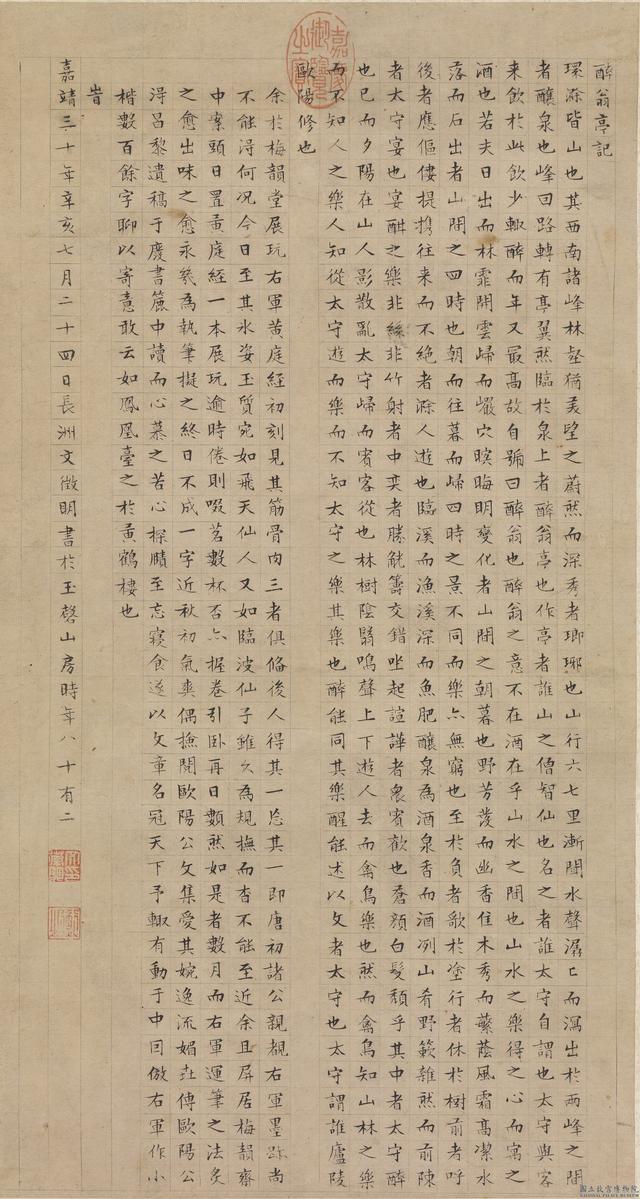 醉翁亭記
環滁皆山也其西南諸峰林壑猶美望之蔚然而深秀者瑯琊也山行六七里漸聞水聲潺〻而瀉出於兩峰之間
者釀泉也峰回路轉有亭翼然臨於泉上者醉翁亭也作亭者誰山之僧智仙也名之者誰太守自謂也太守與客
來飲於此飲少輒醉而年又最高故自號曰醉翁也醉翁之意不在酒在乎山水之間也山水之樂得之心而寓之
酒也若夫日出而林霏開雲歸而巖穴暝晦明變化者山間之朝暮也野芳發而幽香佳木秀而繁蔭風霜高潔水
落而石出者山間之四時也朝而往暮而歸四時之景不同而樂亦無窮也至於負者歌於塗行者休於樹前者呼
後者應傴僂提攜往來而不絕者滁人遊也臨溪而漁溪深而魚肥釀泉為酒泉香而酒冽山肴野蔌雜然而前陳
者太守宴也宴酣之樂非絲非竹射者中奕者勝觥籌交錯坐起諠譁者衆賓歡也蒼顏白髮頹乎其中者太守醉
也已而夕陽在山人影散亂太守歸而賓客從也林樹陰翳鳴聲上下遊人去而禽鳥樂也然而禽鳥知山林之樂
而不知人之樂人知從太守遊而樂而不知太守之樂其樂也醉能同其樂醒能述以文者太守也太守謂誰廬陵
歐陽修也
余於梅韻堂展玩右軍黃庭經初刻見其筋骨肉三者俱備後人得其一忘其一即唐初諸公親覩右軍墨跡尚
不能淂何況今日至其水姿玉質宛如飛天仙人又如臨波仙子雖久為規撫而杳不能至近余且屏居梅韻齋
中案頭日置黃庭經一本展玩逾時倦則啜茗數杯否亦握卷引卧再日數然如是者數月而右軍運筆之法炙
之愈出味之愈永幾為執筆擬之終日不成一字近秋初氣爽偶撿閱歐陽公文集愛其婉逸流媚並傳歐陽公
淂昌黎遺稿于廢書簏中讀而心慕之苦心探賾至忘寢食遂以文章名冠天下予輙有動于中囙倣右軍作小
楷數百餘字聊以寄意敢云如鳳凰臺之於黃鶴樓也
旹
嘉靖三十年辛亥七月二十四日長洲文徵明書於玉磬山房時年八十有二
嘉慶御覽之寶
國立故宮博物院
NATIONAL PALACE MUSEUM